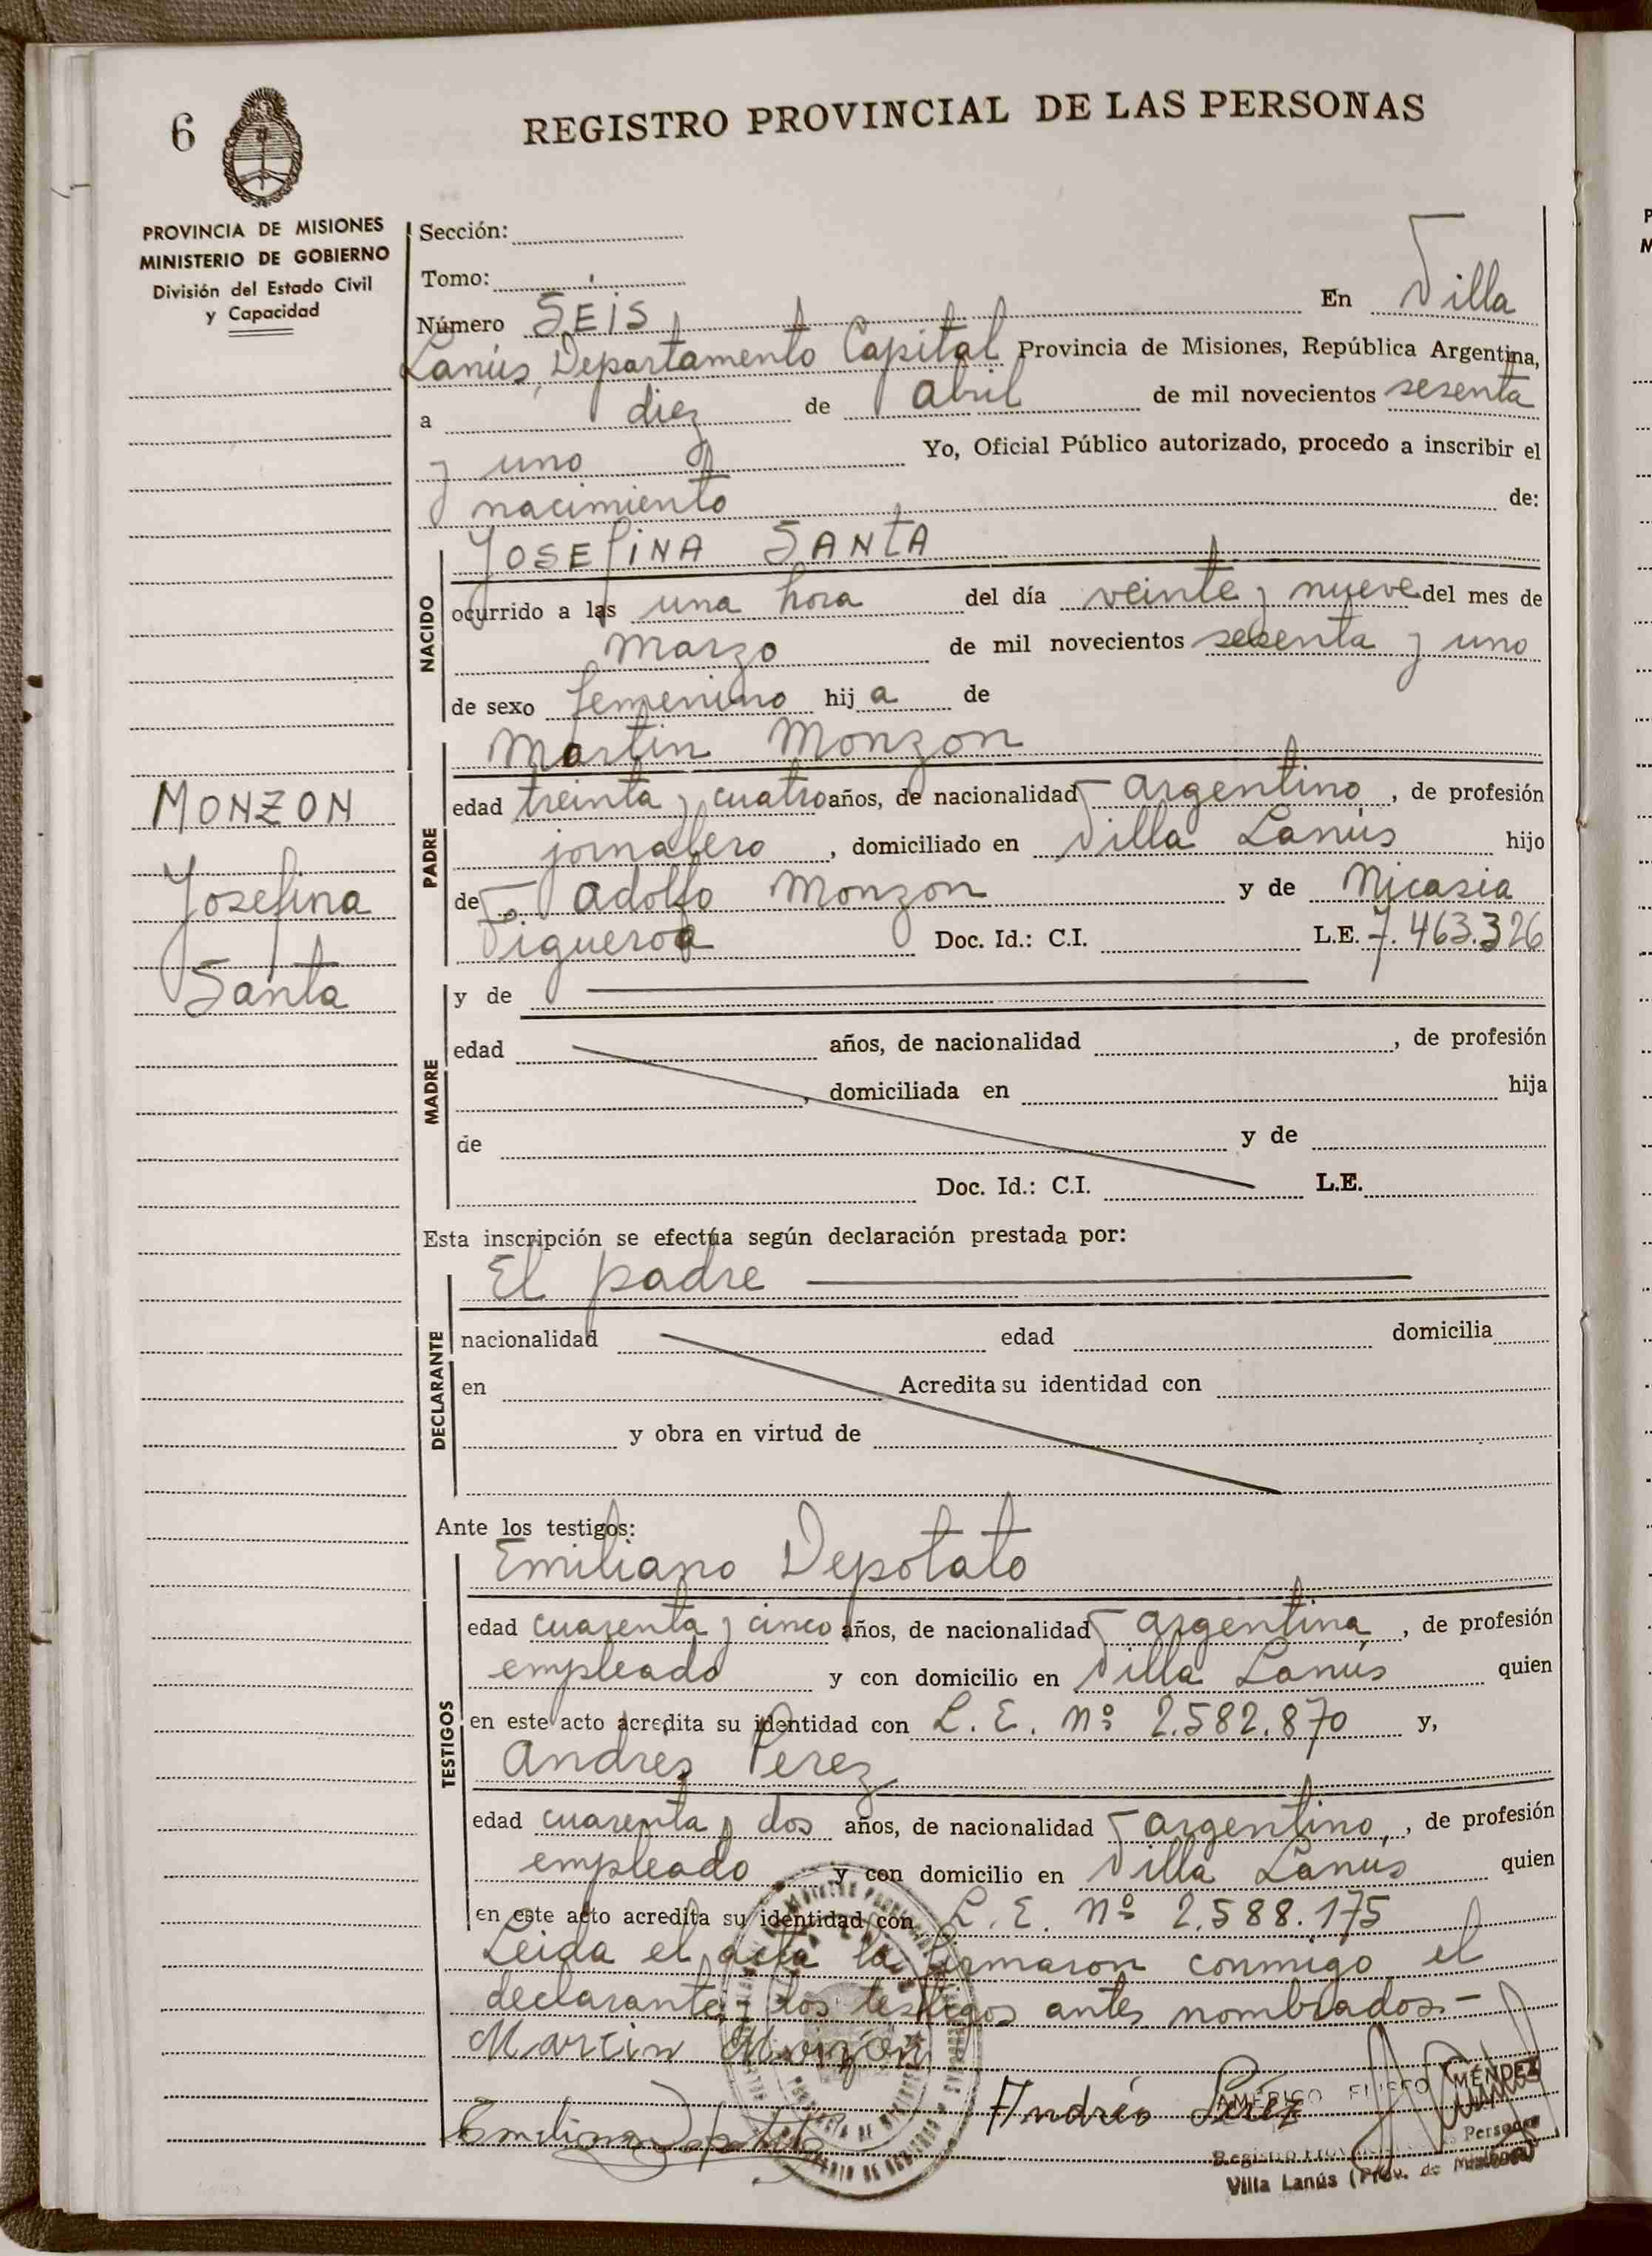 6
REGISTRO PROVINCIAL DE LAS PERSONAS
PROVINCIA DE MISIONES
MINISTERIO DE GOBIERNO
División del Estado Civil
y Capacidad
Sección:
Tomo:
Número SEIS En Villa
Lanús, Departamento Capital Provincia de Misiones, República Argentina,
a diez de abril de mil novecientos sesenta
y uno Yo, Oficial Público autorizado, procedo a inscribir el
nacimiento de:
NACIDO
JOSEFINA SANTA
ocurrido a las una hora del día veinte y nueve del mes de
marzo de mil novecientos sesenta y uno
de sexo femenino hija de
PADRE
Martin Monzon
edad treinta y cuatro años, de nacionalidad argentino, de profesión
jornalero, domiciliado en Villa Lanús hijo
de Adolfo Monzon y de Nicasia
Figueroa Doc. Id.: C.I. L.E. 7.463.326
MONZON
Josefina
Santa
MADRE
y de
edad años, de nacionalidad , de profesión
, domiciliada en hija
de y de
Doc. Id.: C.I. L.E.
Esta inscripción se efectúa según declaración prestada por:
DECLARANTE
El padre
nacionalidad edad domicilia
en Acredita su identidad con
y obra en virtud de
Ante los testigos:
TESTIGOS
Emiliano Depotato
edad cuarenta y cinco años, de nacionalidad argentina, de profesión
empleado y con domicilio en Villa Lanus quien
en este acto acredita su identidad con L. E. Nº 2.582.870 y,
Andres Perez
edad cuarenta y dos años, de nacionalidad argentino, de profesión
empleado y con domicilio en Villa Lanus quien
en este acto acredita su identidad con L. E. Nº 2.588.175
Leida el acta la firmaron conmigo el
declarante y los testigos antes nombrados.-
Martin Monzón
Andrés Pérez
AMÉRICO MÉNDEZ
Villa Lanús (Prov. de Misiones)